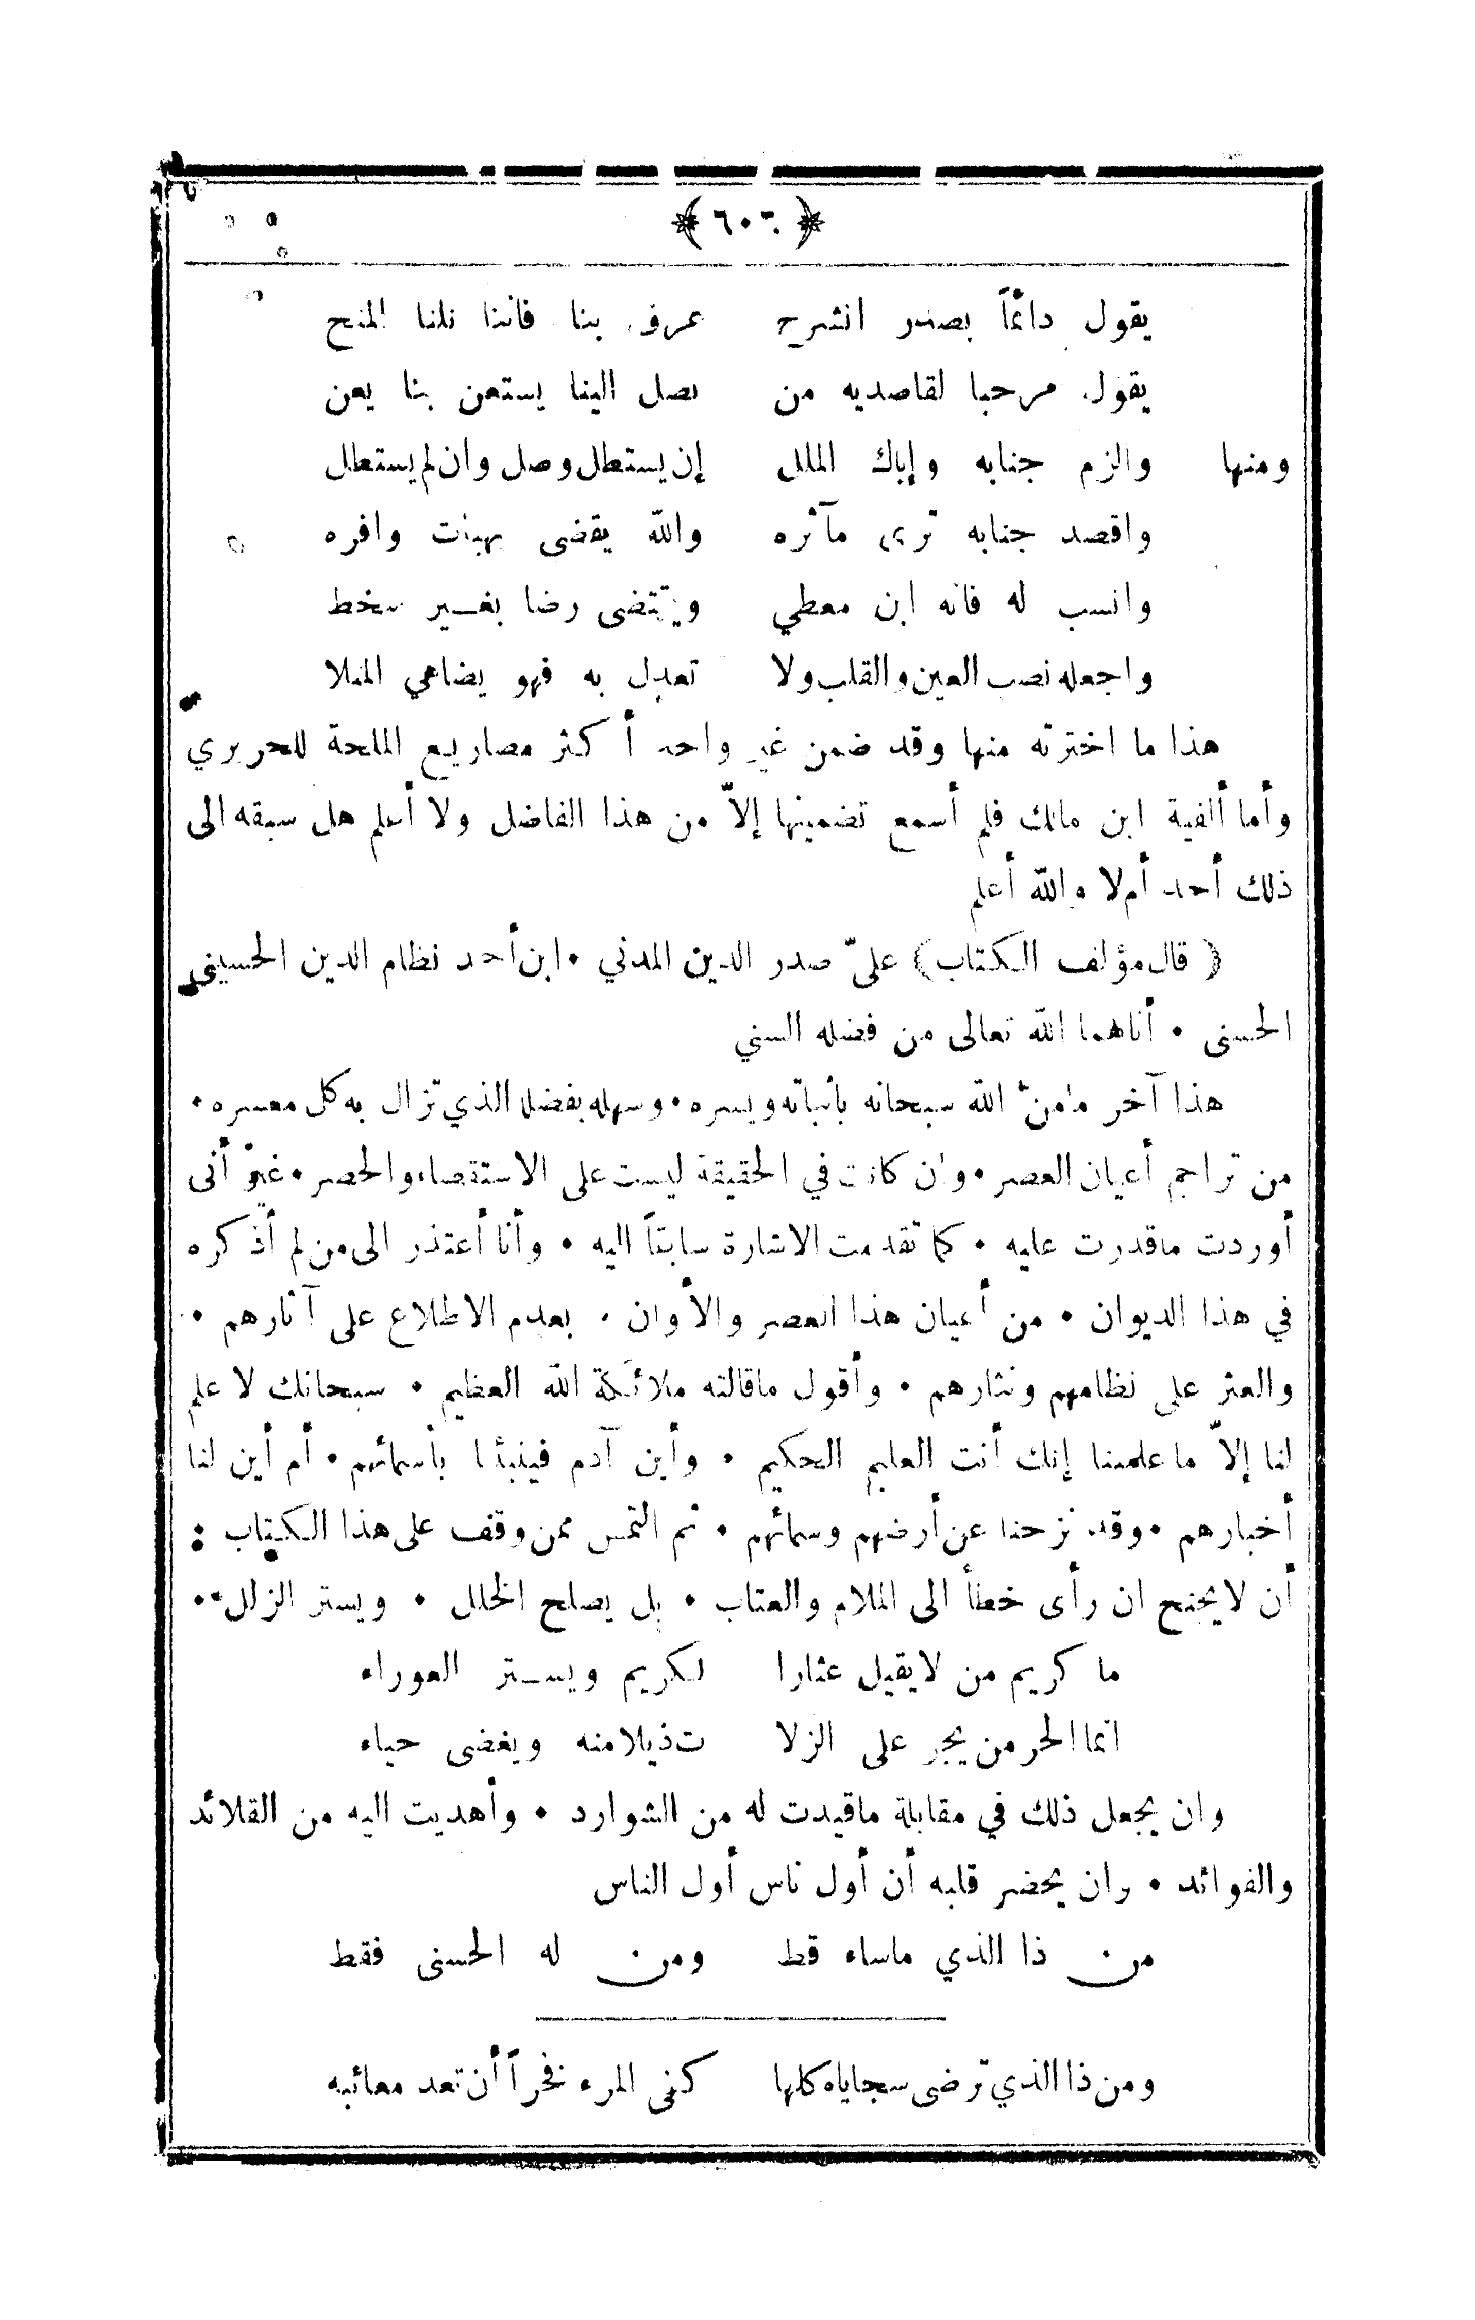 ﴿ ٦٠٦ ﴾
يقول دائماً بصدر انشرح عرف بنا فاننا نلنا المنح
يقول مرحبا لقاصديه من يصل الينا يستعن بنا يعن
ومنها والزم جنابه وإياك الملل إن يستطل وصل وان لم يستطل
واقصد جنابه ترى مآثره والله يقضى بهبات وافره
وانسب له فانه ابن معطي ويقتضى رضا بغير سخط
واجعله نصب العين والقلب ولا تعدل به فهو يضاهي المثلا
هذا ما اخترته منها وقد ضمن غير واحد أكثر مصاريع الملحة للحريري
وأما ألفية ابن مالك فلم أسمع تضمينها إلاّ من هذا الفاضل ولا أعلم هل سبقه الى
ذلك أحد أم لا والله أعلم
( قال مؤلف الكتاب ) علىّ صدر الدين المدني • ابن أحمد نظام الدين الحسينى
الحسنى • أنالهما الله تعالى من فضله السني
هذا آخر ما منّ الله سبحانه باثباته ويسره • وسهله بفضله الذي تزال به كل معسره •
من تراجم أعيان العصر • وان كانت في الحقيقة ليست على الاستقصاء والحصر • غير أنى
أوردت ماقدرت عليه • كما تقدمت الاشارة سابقاً اليه • وأنا أعتذر الى من لم أذكره
في هذا الديوان • من أعيان هذا العصر والأوان • بعدم الاطلاع على آثارهم •
والعثر على نظامهم ونثارهم • وأقول ماقالته ملائكة الله العظيم • سبحانك لا علم
لنا إلاّ ما علمتنا إنك أنت العليم الحكيم • وأين آدم فينبئنا بأسمائهم • أم أين لنا
أخبارهم • وقد نزحنا عن أرضهم وسمائهم • ثم التمس ممن وقف على هذا الكتاب •
أن لا يجنح ان رأى خطأ الى الملام والعتاب • بل يصلح الخلل • ويستر الزلل •
ما كريم من لا يقيل عثارا لكريم ويستر العوراء
انما الحر من يجر على الزلا ت ذيلا منه ويغضى حياء
وان يجعل ذلك في مقابلة ماقيدت له من الشوارد • وأهديت اليه من القلائد
والفوائد • وان يحضر قلبه أن أول ناس أول الناس
من ذا الذي ماساء قط ومن له الحسنى فقط
ومن ذا الذي ترضى سجاياه كلها كفى المرء فخراً أن تعد معائبه